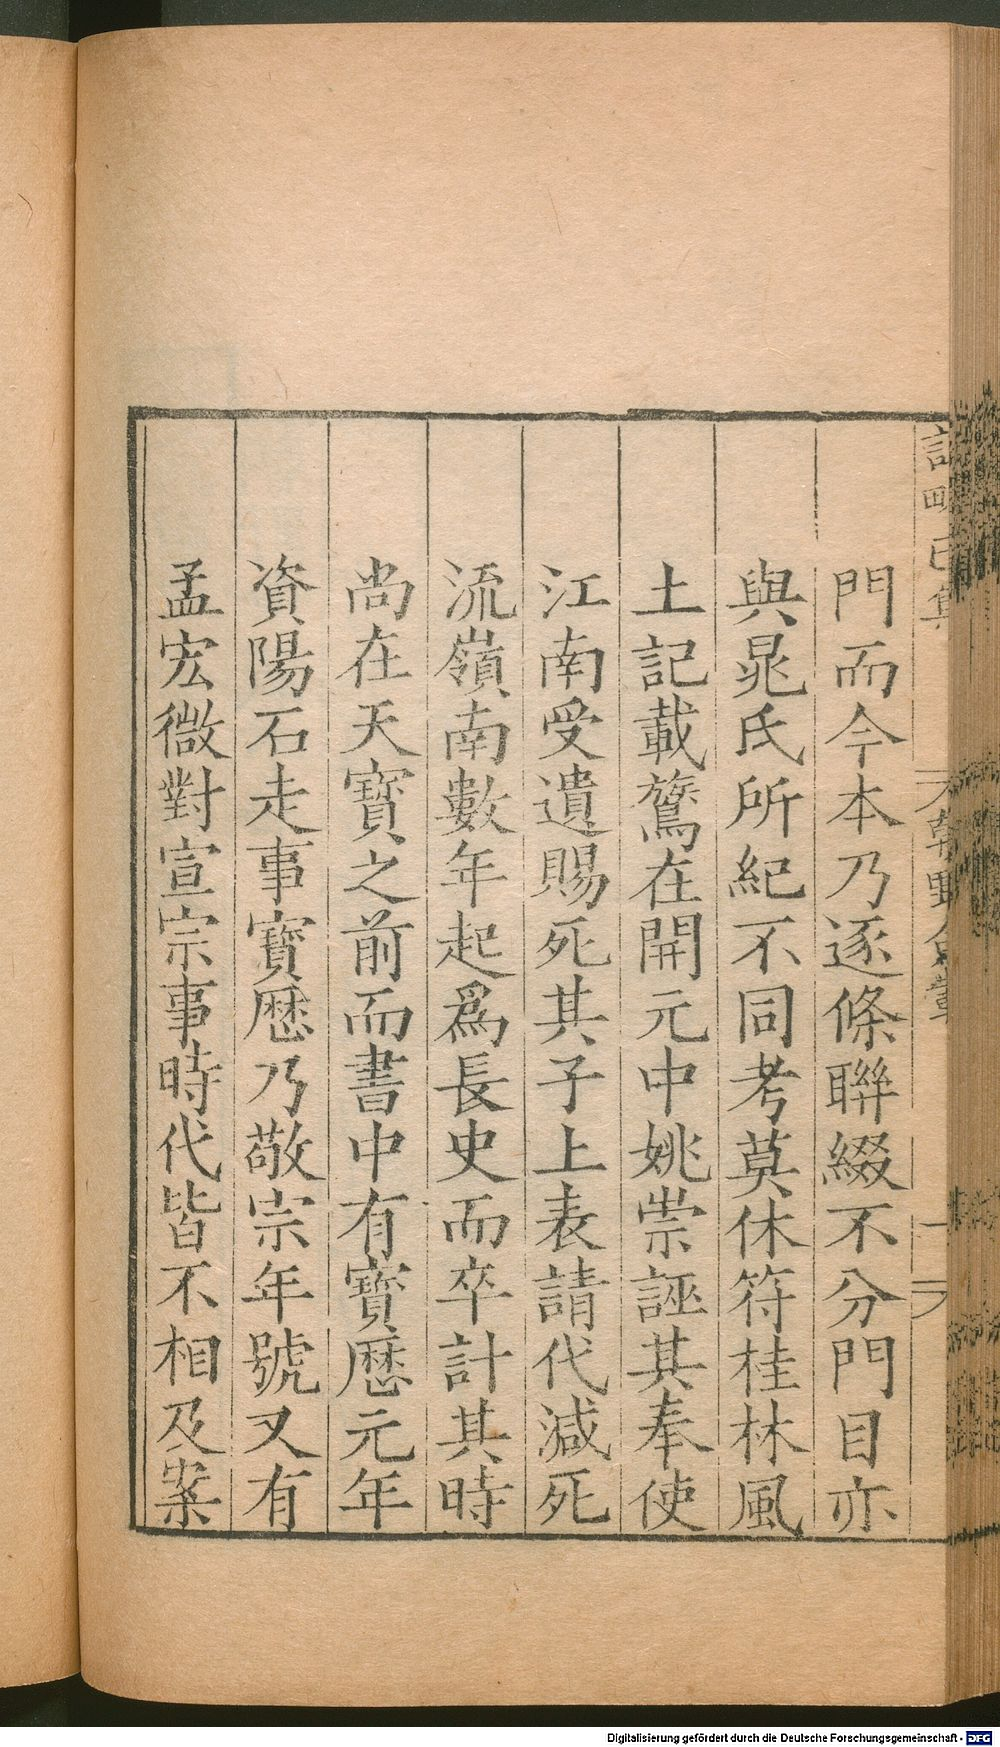 門而今本乃逐條聯綴不分門目亦
與晁氏所紀不同考莫休符桂林風
土記載鷟在開元中姚崇誣其奉使
江南受遺賜死其子上表請代減死
流嶺南數年起爲長史而卒計其時
尚在天寶之前而書中有寶歷元年
資陽石走事寶歷乃敬宗年號又有
孟宏微對宣宗事時代皆不相及案
Digitalisierung gefördert durch die Deutsche Forschungsgemeinschaft - DFG